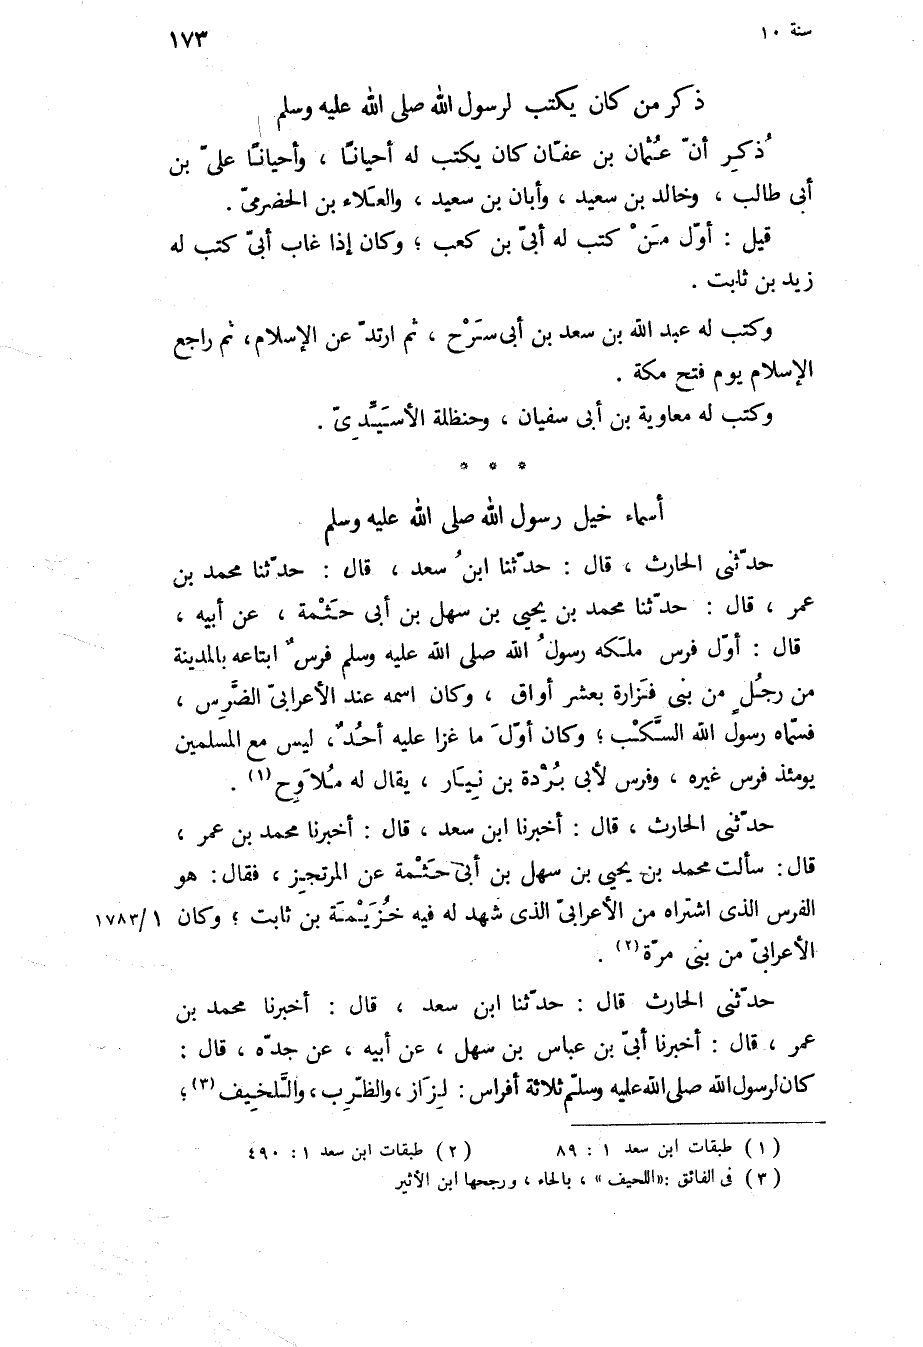 سنة ١٠
١٧٣
ذكر من كان يكتب لرسول الله صلى الله عليه وسلم
ذُكِر أنّ عُثْمان بن عفّان كان يكتب له أحيانًا ، وأحيانًا علىّ بن
أبى طالب ، وخالد بن سعيد ، وأبان بن سعيد ، والعَلاء بن الحضرمىّ .
قيل : أوّل مَنْ كتب له أبىّ بن كعب ؛ وكان إذا غاب أبىّ كتب له
زيد بن ثابت .
وكتب له عبد الله بن سعد بن أبى سَرْح ، ثم ارتدّ عن الإسلام، ثم راجع
الإسلام يوم فتح مكة .
وكتب له معاوية بن أبى سفيان ، وحنظلة الأسَيِّدىّ .
* * *
أسماء خيل رسول الله صلى الله عليه وسلم
حدّثنى الحارث ، قال : حدّثنا ابنُ سعد ، قال : حدّثنا محمد بن
عمر ، قال : حدّثنا محمد بن يحيى بن سهل بن أبى حَثْمة ، عن أبيه ،
قال : أوّل فرس ملَكه رسولُ الله صلى الله عليه وسلم فرسٌ ابتاعه بالمدينة
من رجُلٍ من بنى فَزارة بعشر أواق ، وكان اسمه عند الأعرابىّ الضَّرِس ،
فسمّاه رسول الله السَّكْب ؛ وكان أوّلَ ما غزا عليه أحُدٌ، ليس مع المسلمين
يومئذ فرس غيره ، وفرس لأبى بُرْدة بن نِيَار ، يقال له مُلاَوِح (١) .
حدّثنى الحارث ، قال : أخبرنا ابن سعد ، قال : أخبرنا محمد بن عمر ،
قال : سألت محمد بن يحيى بن سهل بن أبى حَثْمة عن المرتجِز ، فقال : هو
الفرس الذى اشتراه من الأعرابىّ الذى شهد له فيه خُزَيْمَة بن ثابت ؛ وكان ١/١٧٨٣
الأعرابىّ من بنى مرّة (٢) .
حدّثنى الحارث قال : حدّثنا ابن سعد ، قال : أخبرنا محمد بن
عمر ، قال : أخبرنا أبىّ بن عباس بن سهل ، عن أبيه ، عن جدّه ، قال :
كان لرسول الله صلى الله عليه وسلّم ثلاثة أفراس : لِزَاز ، والظَّرِب ، واللَّخِيف (٣) ؛
(١) طبقات ابن سعد ١ : ٨٩
(٢) طبقات ابن سعد ١ : ٤٩٠
(٣) فى الفائق : «اللحيف» ، بالحاء ، ورجحها ابن الأثير